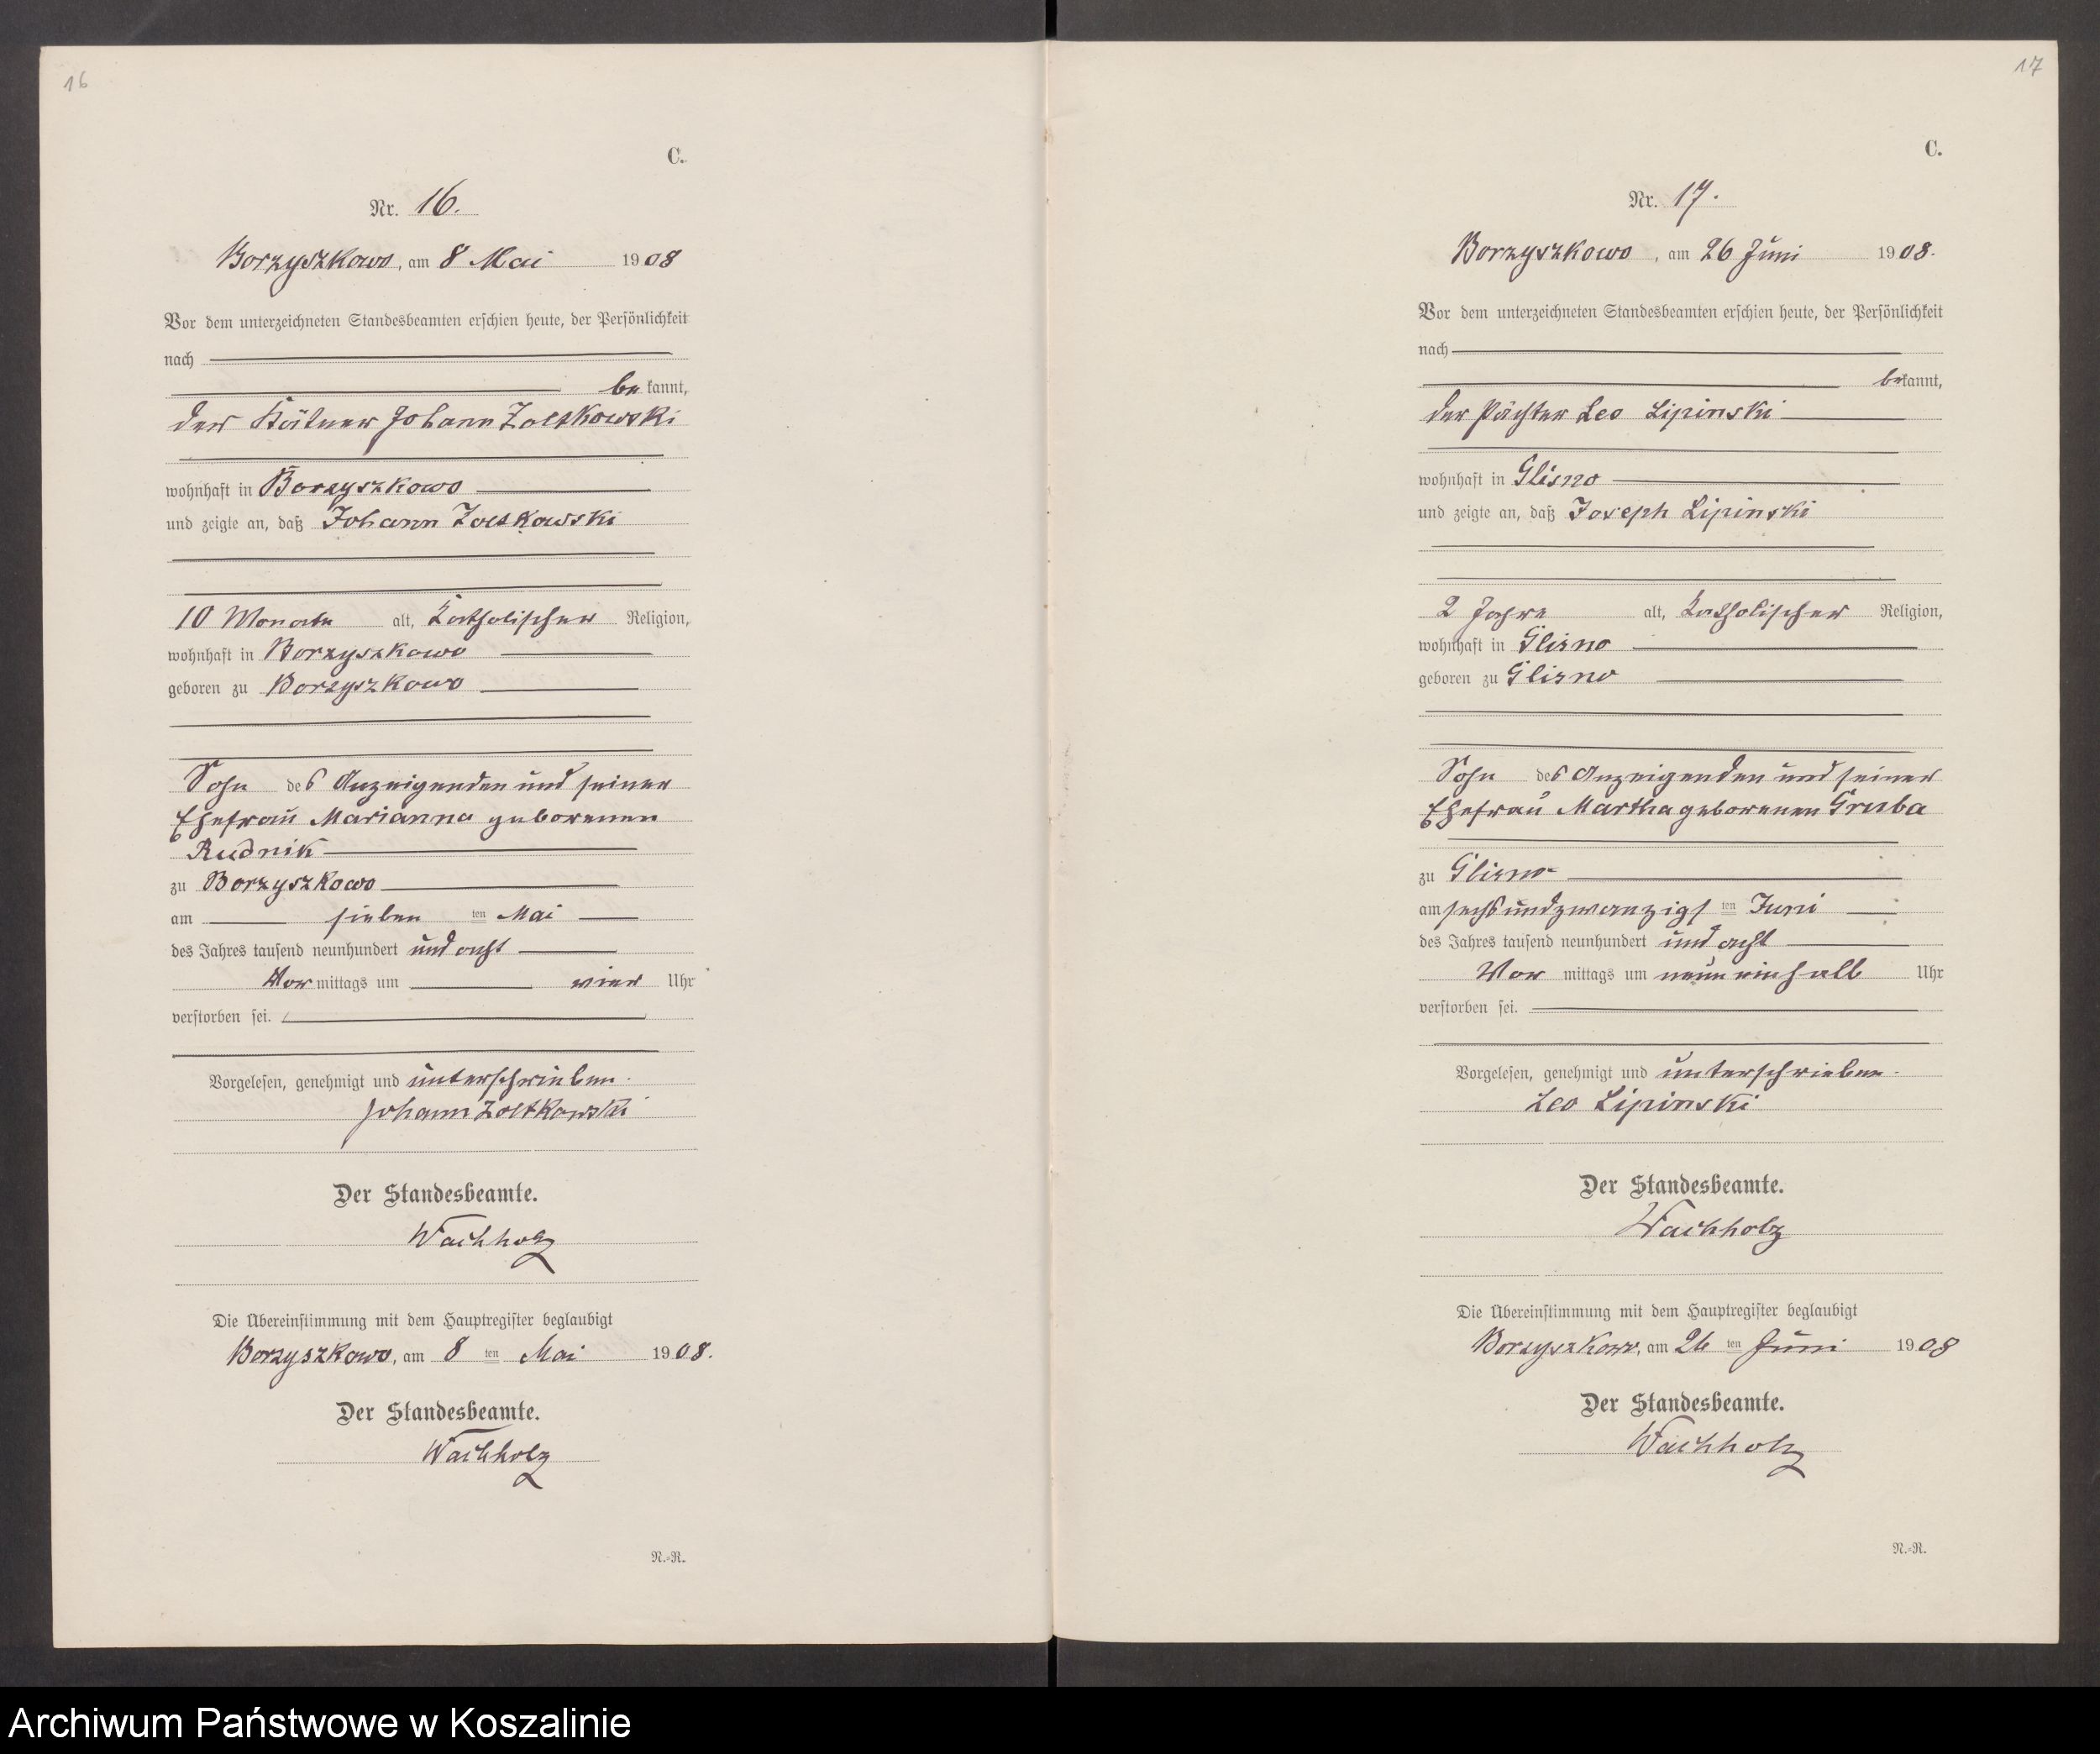 16
C.
Nr. 16.
Borzyszkowo, am 8 Mai 1908
Vor dem unterzeichneten Standesbeamten erschien heute, der Persönlichkeit
nach
bekannt,
der Kätner Johann Zoltkowski
wohnhaft in Borzyszkowo
und zeigte an, daß Johann Zoltkowski
10 Monate alt, katholischer Religion,
wohnhaft in Borzyszkowo
geboren zu Borzyszkowo
Sohn des Anzeigenden und seiner
Ehefrau Marianna geborenen
Rudnik
zu Borzyszkowo
am sieben ten Mai
des Jahres tausend neunhundert und acht
Vor mittags um vier Uhr
verstorben sei.
Vorgelesen, genehmigt und unterschrieben.
Johann Zoltkowski
Der Standesbeamte.
Wachholz
Die Übereinstimmung mit dem Hauptregister beglaubigt
Borzyszkowo, am 8 ten Mai 1908.
Der Standesbeamte.
Wachholz
N.=R.
17
C.
Nr. 17.
Borzyszkowo, am 26 Juni 1908.
Vor dem unterzeichneten Standesbeamten erschien heute, der Persönlichkeit
nach
bekannt,
der Pächter Leo Lipinski
wohnhaft in Glisno
und zeigte an, daß Joseph Lipinski
2 Jahre alt, katholischer Religion,
wohnhaft in Glisno
geboren zu Glisno
Sohn des Anzeigenden und seiner
Ehefrau Martha geborenen Gruba
zu Glisno
am sechsundzwanzigs ten Juni
des Jahres tausend neunhundert und acht
Vor mittags um neun einhalb Uhr
verstorben sei.
Vorgelesen, genehmigt und unterschrieben.
Leo Lipinski
Der Standesbeamte.
Wachholz
Die Übereinstimmung mit dem Hauptregister beglaubigt
Borzyszkowo, am 26 ten Juni 1908
Der Standesbeamte.
Wachholz
N.=R.
Archiwum Państwowe w Koszalinie